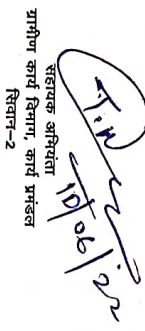 10/06/22
सहायक अभियंता
ग्रामीण कार्य विभाग, कार्य प्रमंडल
सिवान-2